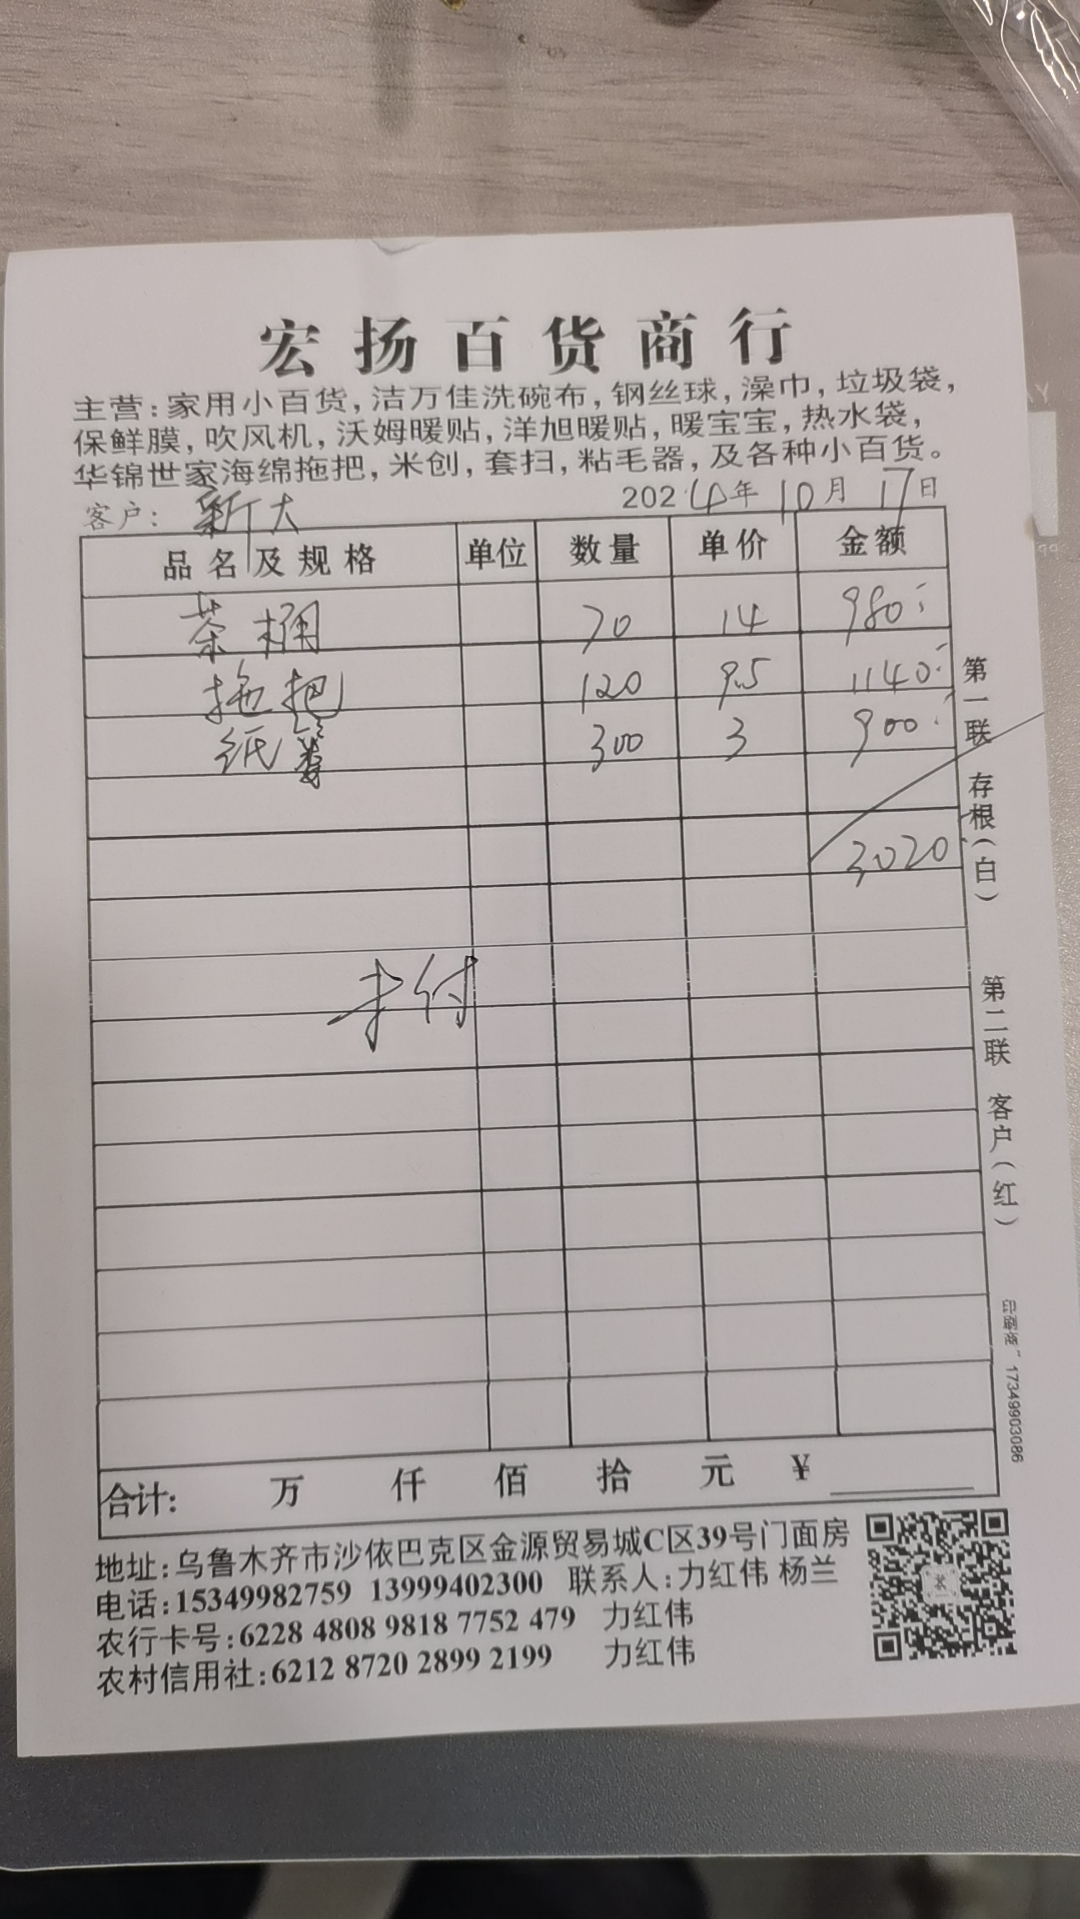 宏扬百货商行
主营:家用小百货,洁万佳洗碗布,钢丝球,澡巾,垃圾袋,
保鲜膜,吹风机,沃姆暖贴,洋旭暖贴,暖宝宝,热水袋,
华锦世家海绵拖把,米创,套扫,粘毛器,及各种小百货。
客户: 新大 2024年10月17日
品名及规格 单位 数量 单价 金额
茶桶 70 14 980
拖把 120 9.5 1140
纸篓 300 3 900
3020
未付
合计: 万 仟 佰 拾 元 ¥
地址:乌鲁木齐市沙依巴克区金源贸易城C区39号门面房
电话:15349982759 13999402300 联系人:力红伟 杨兰
农行卡号:6228 4808 9818 7752 479 力红伟
农村信用社:6212 8720 2899 2199 力红伟
第一联 存根(白)
第二联 客户(红)
印刷商 17349903086